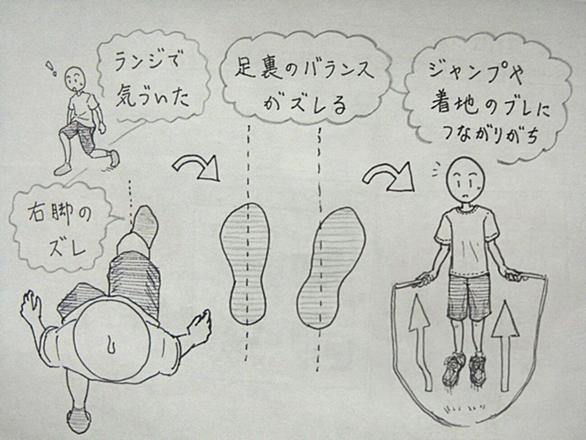 ランジで
気づいた
足裏のバランス
がズレる
ジャンプや
着地のブレに
つながりがち
右脚の
ズレ